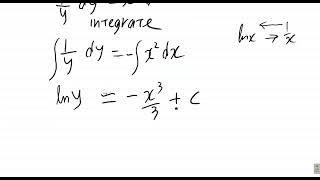 integrate
∫ 1/y dy = -∫ x² dx
ln y = -x³/3 + c
ln x ⇄ 1/x